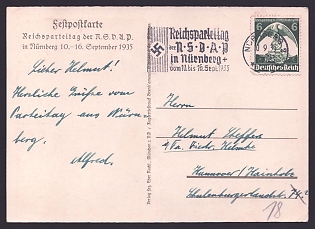 Festpostkarte
Reichsparteitag der N.S.D.A.P.
in Nürnberg 10.-16. September 1935
Reichsparteitag
der N·S·D·A·P
in Nürnberg
vom 10. bis 16. Sept. 1935
6
Deutsches Reich
Lieber Helmut!
Herzliche Grüße vom
Parteitag aus Nürn-
berg.
Alfred.
Herrn
Helmut
Hannover / Hainholz
18